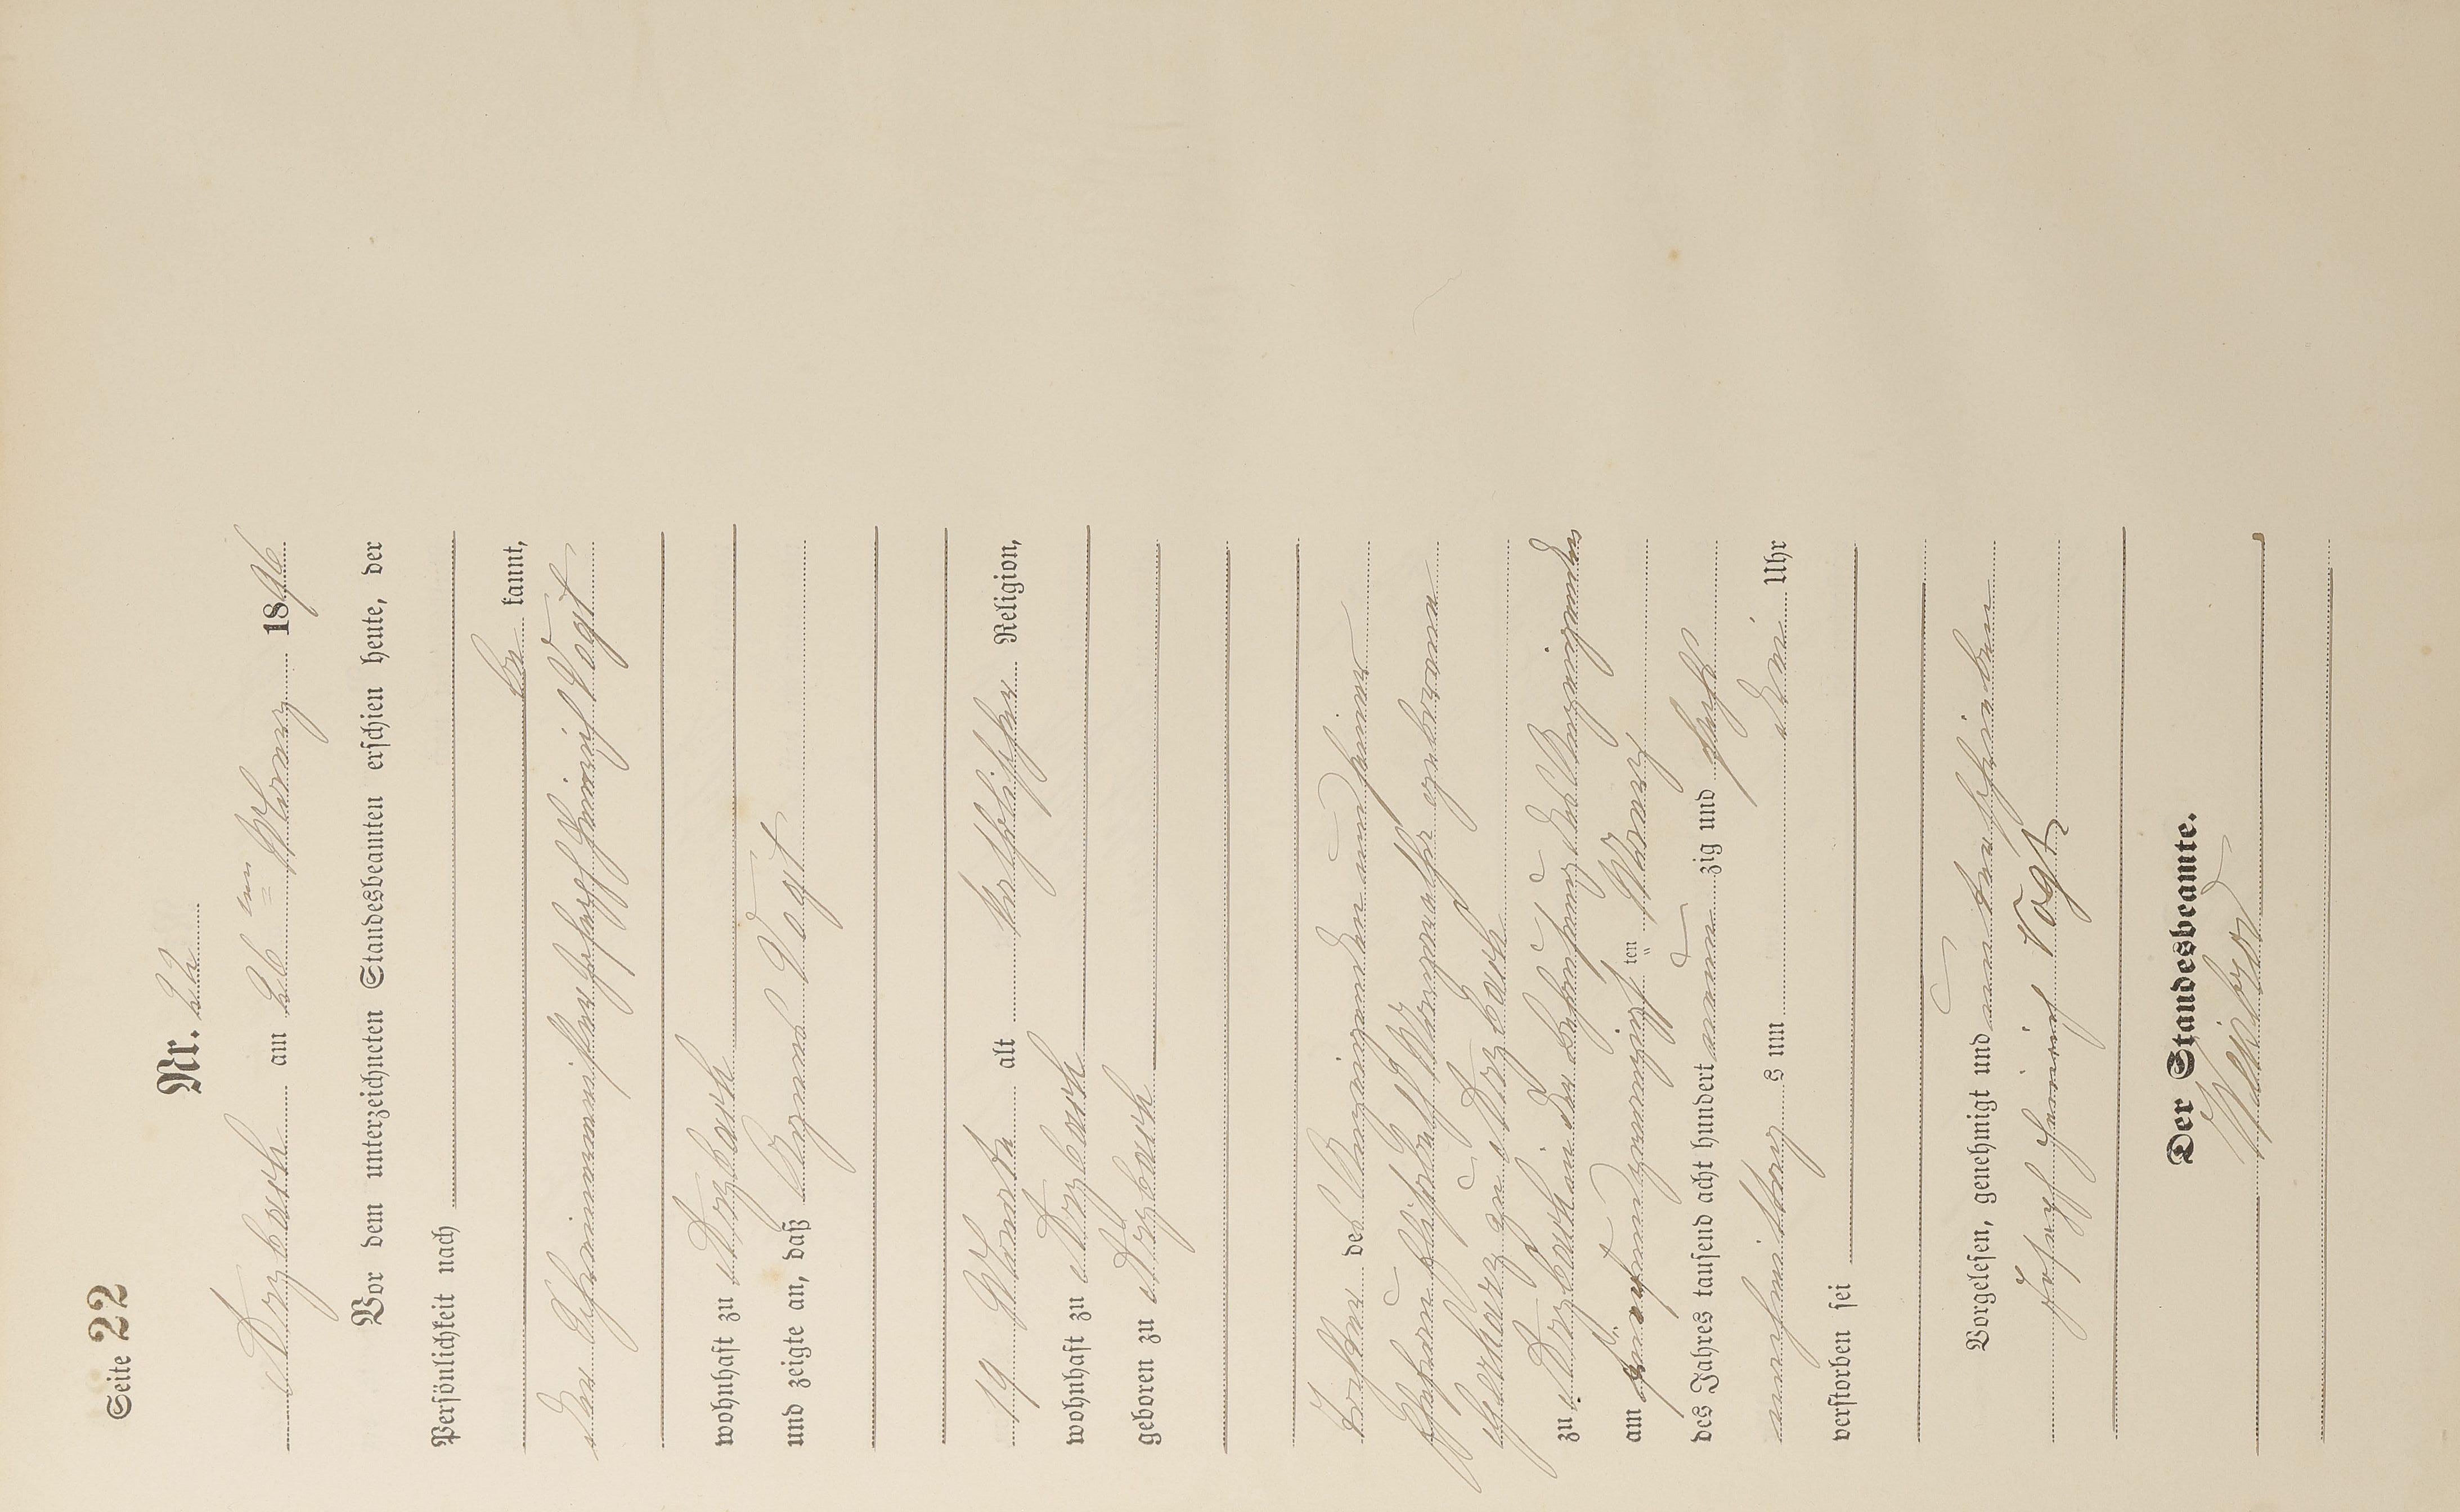 Seite 22
Nr. 22
Arzbach am 26ten März 1896
Vor dem unterzeichneten Standesbeamten erschien heute, der
Persönlichkeit nach
be kannt,
der Schreinermeister Joseph Heinrich Vogt
wohnhaft zu Arzbach
und zeigte an, daß Agnes Vogt
19 Monate alt katholischer Religion,
wohnhaft zu Arzbach
geboren zu Arzbach
Tochter des Anzeigenden und seiner
Ehefrau Elisabeth Margaretha geborenen
zu Arzbach
zu Arzbach in der Behausung des Anzeigenden
am fünfundzwanzigsten März
des Jahres tausend acht hundert neunzig und sechs
nachmittags um drei Uhr
verstorben sei
Vorgelesen, genehmigt und unterschrieben
Joseph Heinrich Vogt
Der Standesbeamte.